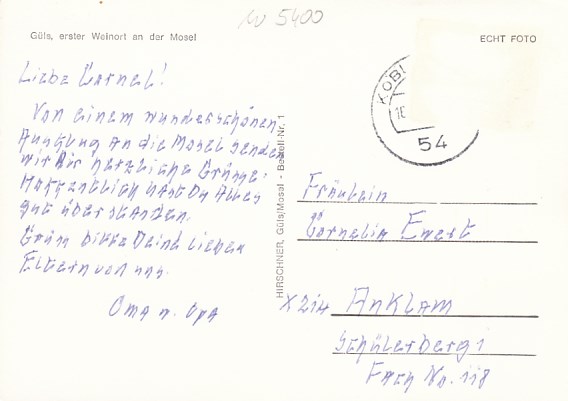 W 5400
Güls, erster Weinort an der Mosel
ECHT FOTO
KOBL
54
Liebe Cornel!
Von einem wunderschönen
Ausflug an die Mosel senden
wir Dir herzliche Grüße.
Hoffentlich hast Du Alles
gut überstanden.
Grüße bitte Deine lieben
Eltern von uns.
Oma u. Opa
HIRSCHNER, Güls/Mosel - Bestell-Nr. 1
Fräulein
Cornelia Ewert
X214 Anklam
Schülerberg 1
Fach No. 118